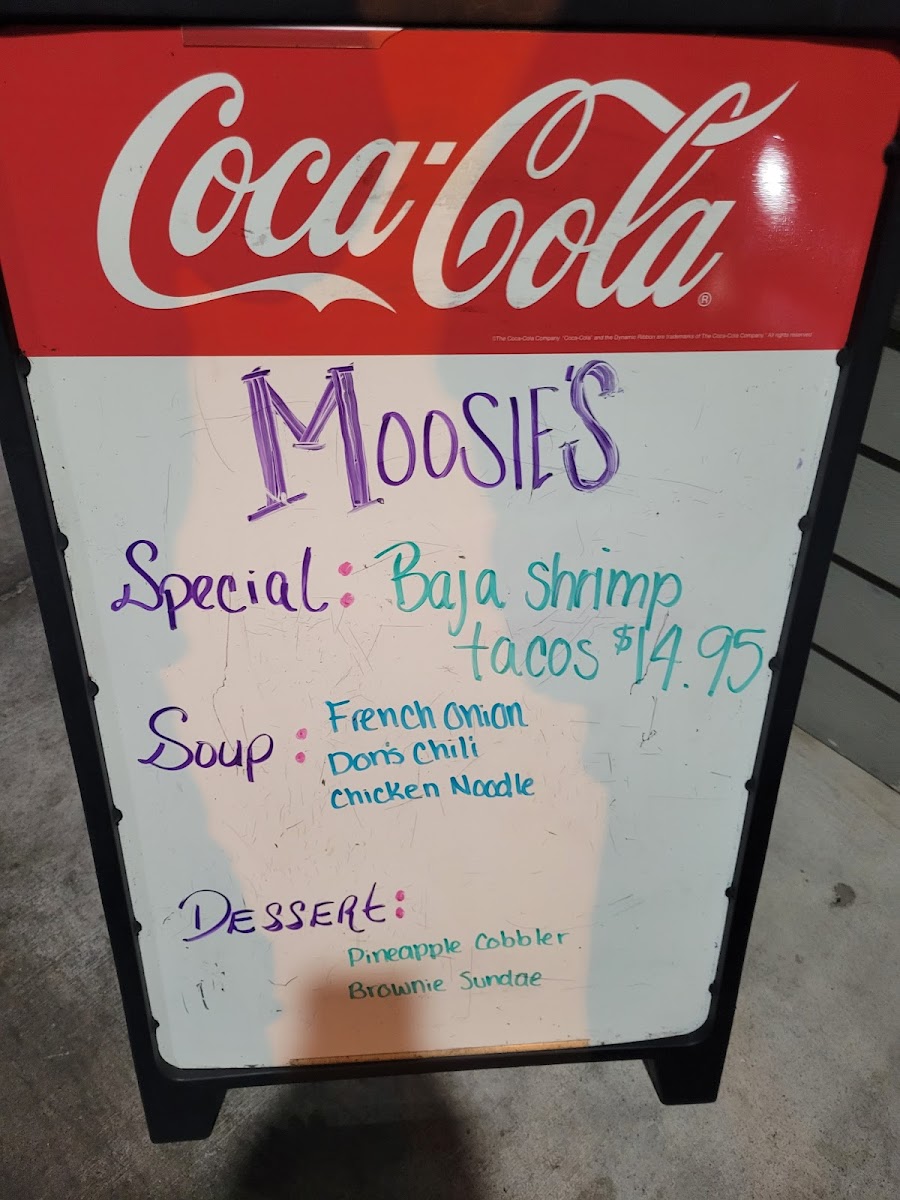 Coca-Cola
®
©The Coca-Cola Company. "Coca-Cola" and the Dynamic Ribbon are trademarks of The Coca-Cola Company. All rights reserved.
MOOSIE'S
Special: Baja shrimp
tacos $14.95
Soup: French onion
Don's Chili
Chicken Noodle
DESSERt:
Pineapple Cobbler
Brownie Sundae